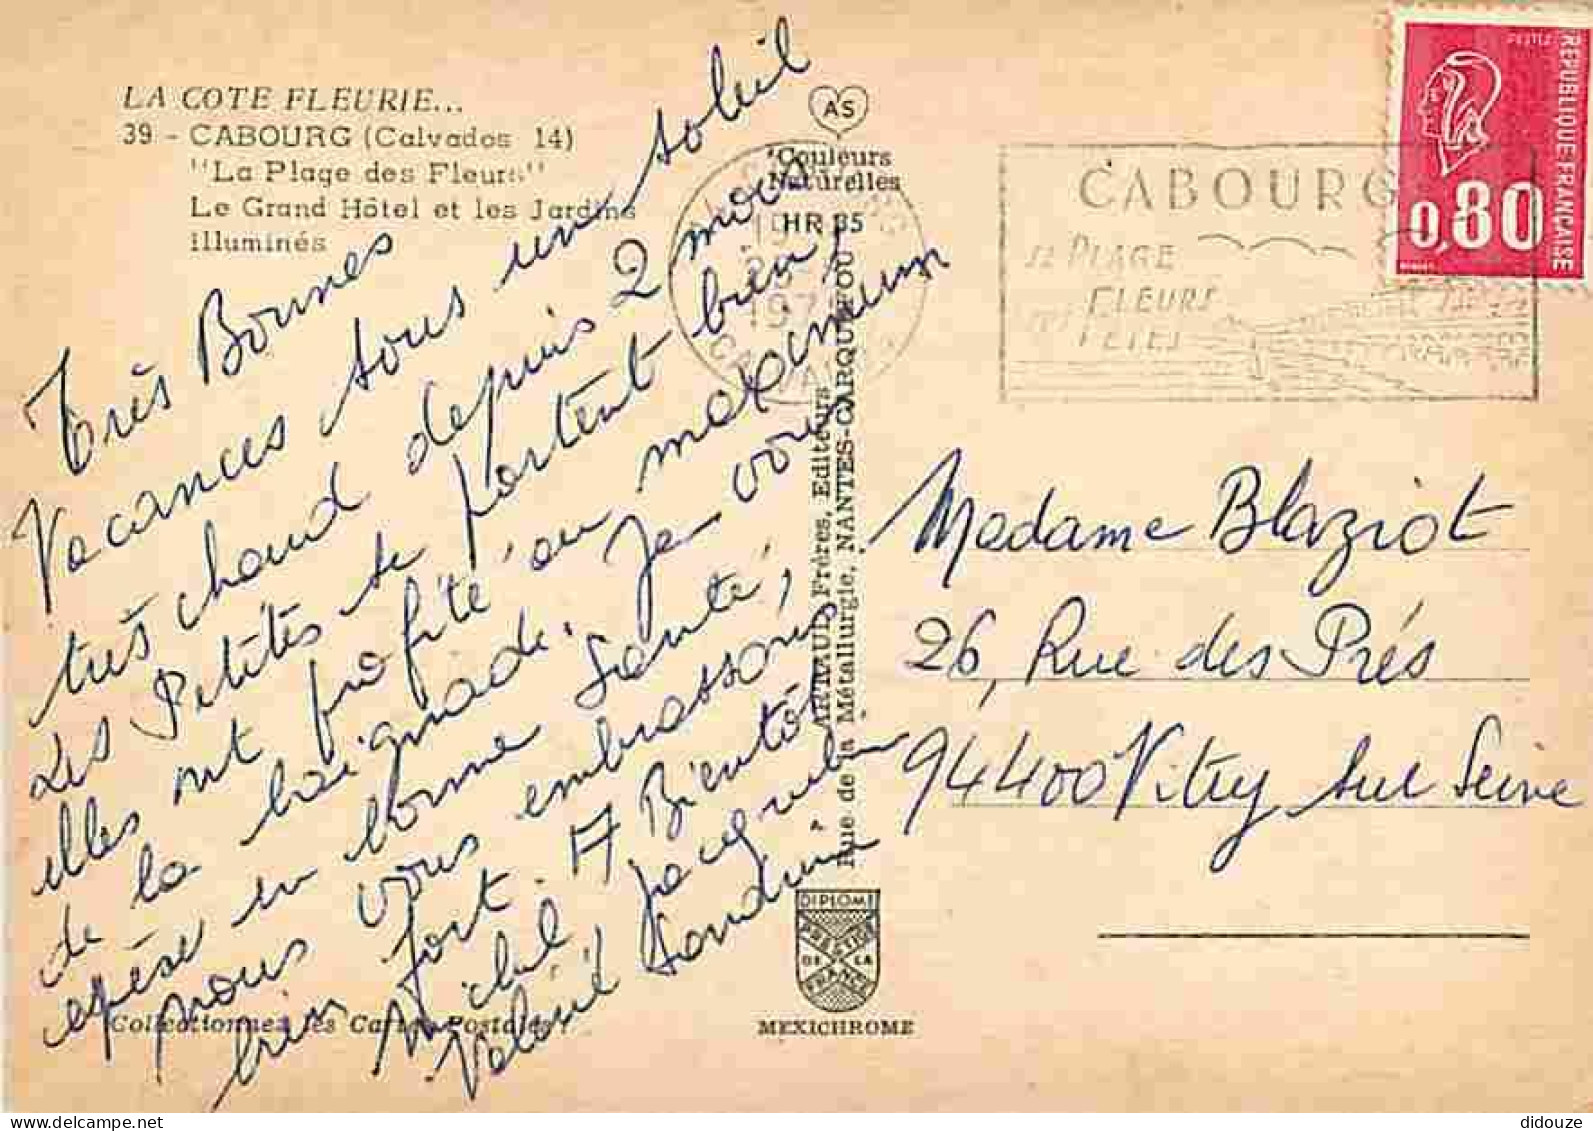 LA COTE FLEURIE...
39 - CABOURG (Calvados 14)
"La Plage des Fleurs"
Le Grand Hôtel et les Jardins
illuminés
Très Bonnes
Vacances sous un soleil
très chaud depuis 2 mois
Les Petites se portent bien,
elles ont profité au maximum
de la baignade. Je vous
espère en bonne santé,
nous vous embrassons
bien fort. A Bientôt
Michel Jacqueline
Valérie Sandrine
Collectionnez les Cartes Postales !
AS
Couleurs
Naturelles
HR 85
ARTAUD Frères, Editeurs
Rue de la Métallurgie, NANTES-CARQUEFOU
DIPLOME
PRESTIGE
DE LA
FRANCE
MEXICHROME
CABOURG
197
CALVADOS
CABOURG
SA PLAGE
SES FLEURS
FETES
REPUBLIQUE FRANÇAISE
POSTES
0,80
Madame Blaziot
26, Rue des Prés
94400 Vitry sur Seine
didouze